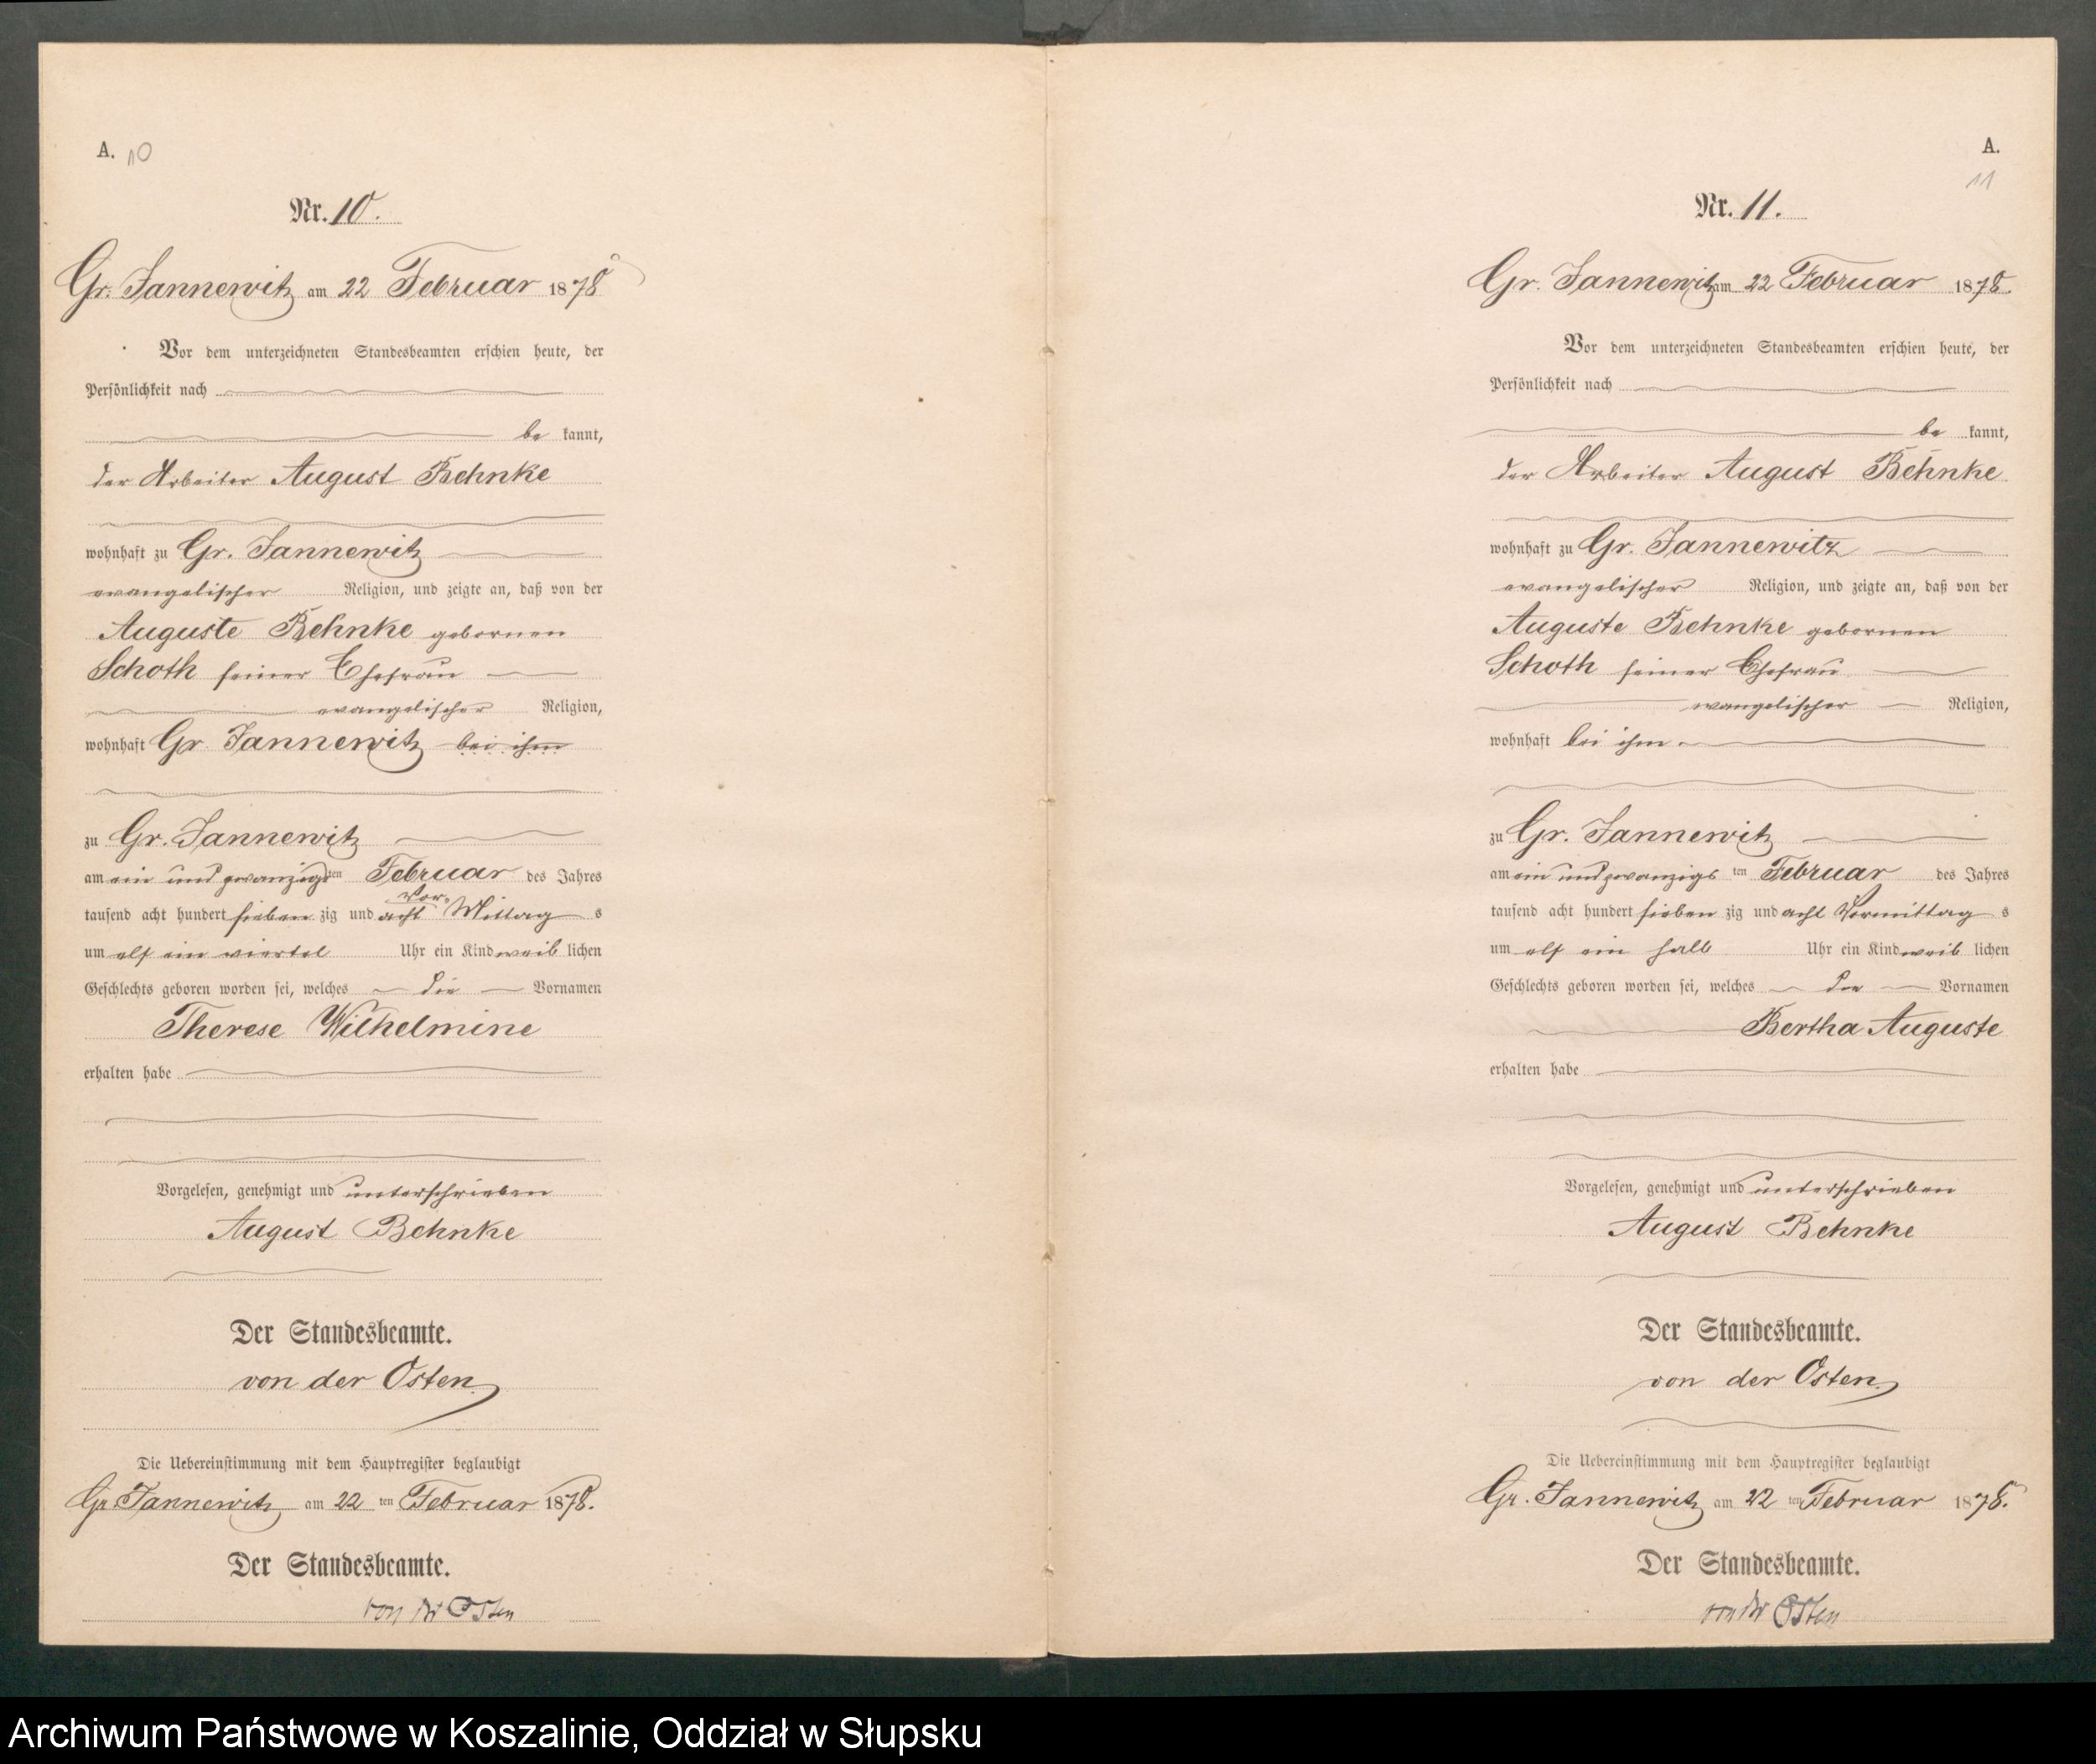 A. 10
Nr. 10.
Gr. Jannewitz am 22 Februar 1878
Vor dem unterzeichneten Standesbeamten erschien heute, der
Persönlichkeit nach
be kannt,
der Arbeiter August Behnke
wohnhaft zu Gr. Jannewitz
evangelischer Religion, und zeigte an, daß von der
Auguste Behnke gebornen
Schoth seiner Ehefrau
evangelischer Religion,
wohnhaft Gr Jannewitz bei ihm
zu Gr. Jannewitz
am ein und zwanzigsten Februar des Jahres
tausend acht hundert sieben zig und acht Vor Mittag s
um elf ein viertel Uhr ein Kind weib lichen
Geschlechts geboren worden sei, welches die Vornamen
Therese Wilhelmine
erhalten habe
Vorgelesen, genehmigt und unterschrieben
August Behnke
Der Standesbeamte.
von der Osten
Die Uebereinstimmung mit dem Hauptregister beglaubigt
Gr. Jannewitz am 22 ten Februar 1878.
Der Standesbeamte.
von der Osten
A.
11
Nr. 11.
Gr. Jannewitz am 22 Februar 1878.
Vor dem unterzeichneten Standesbeamten erschien heute, der
Persönlichkeit nach
be kannt,
der Arbeiter August Behnke
wohnhaft zu Gr. Jannewitz
evangelischer Religion, und zeigte an, daß von der
Auguste Behnke gebornen
Schoth seiner Ehefrau
evangelischer Religion,
wohnhaft bei ihm
zu Gr. Jannewitz
am ein und zwanzigs ten Februar des Jahres
tausend acht hundert sieben zig und acht Vormittag s
um elf ein halb Uhr ein Kind weib lichen
Geschlechts geboren worden sei, welches die Vornamen
Bertha Auguste
erhalten habe
Vorgelesen, genehmigt und unterschrieben
August Behnke
Der Standesbeamte.
von der Osten.
Die Uebereinstimmung mit dem Hauptregister beglaubigt
Gr. Jannewitz am 22 ten Februar 1878.
Der Standesbeamte.
von der Osten
Archiwum Państwowe w Koszalinie, Oddział w Słupsku